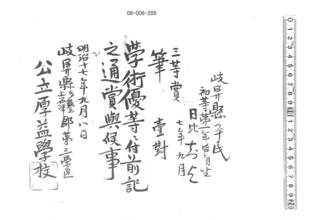 06-009-289
岐阜縣平民
初等第一級卒業生
日比
七年九月
三等賞
筆 壹對
學術優等ニ付前記
之通賞與候事
明治十七年九月八日
岐阜縣 郡第三學區
公立厚益學校